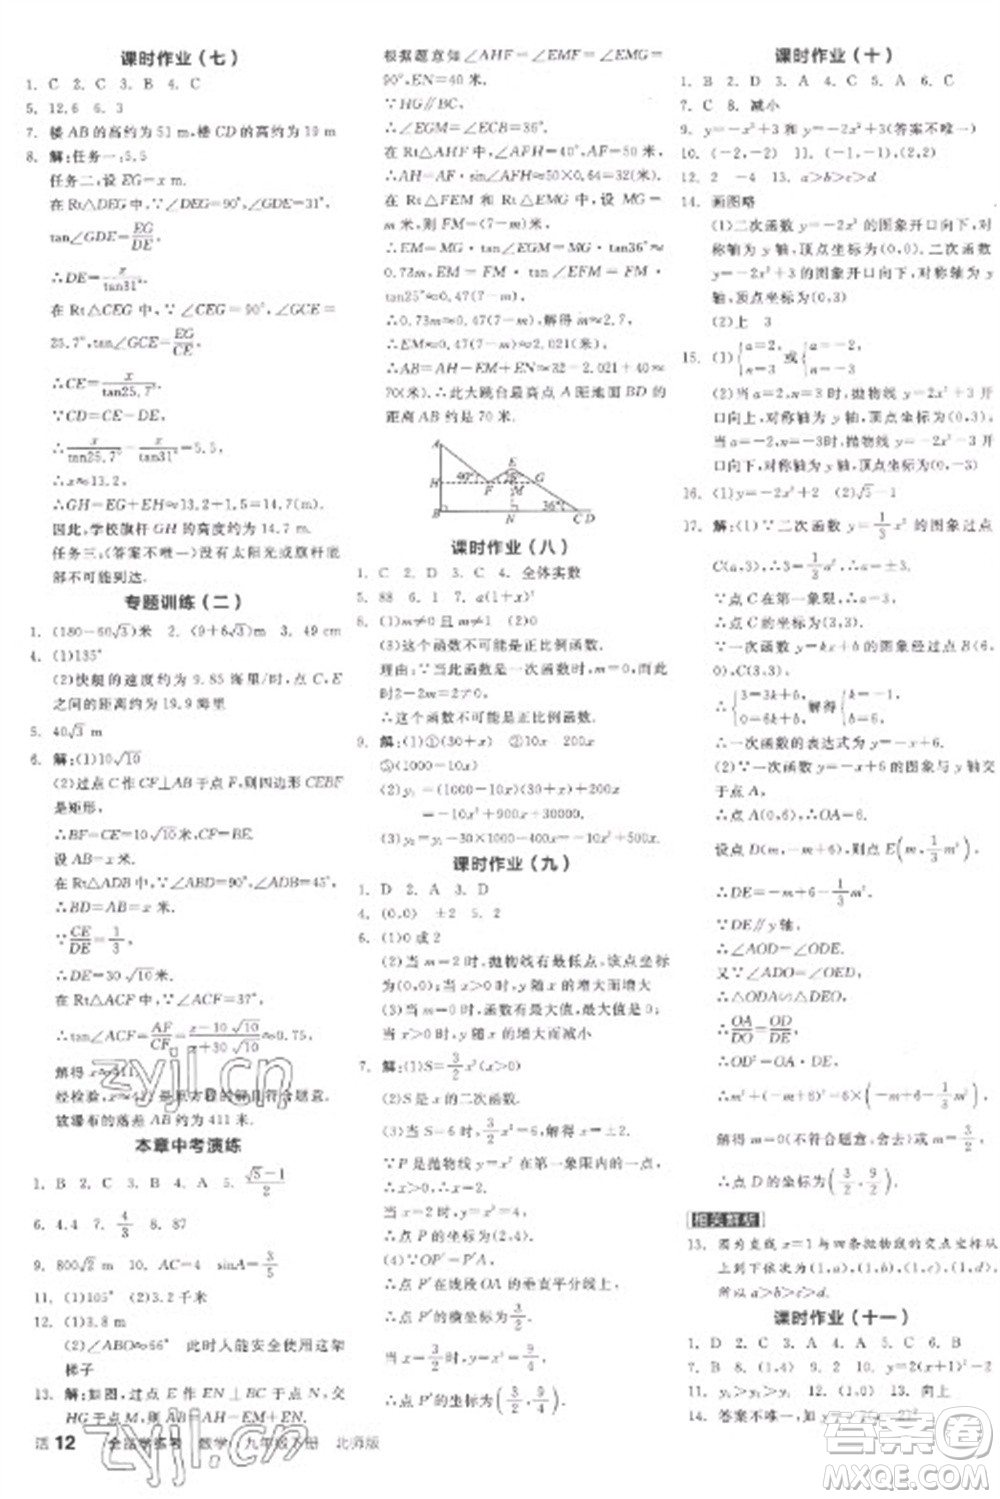 课时作业(七)
1. C 2. C 3. B 4. C
5. 12.6 6. 3
7. 楼 AB 的高约为 51 m,楼 CD 的高约为 19 m
8. 解:任务一:5.5
任务二,设 EG=x m.
在 Rt△DEG 中,∵∠EGD=90°,∠GDE=31°,
tan∠GDE=EG/DE,
∴DE=x/tan31°.
在 Rt△CEG 中,∵∠EGC=90°,∠GCE=
25.7°,tan∠GCE=EG/CE,
∴CE=x/tan25.7°.
∵CD=CE-DE,
∴x/tan25.7°-x/tan31°=5.5,
∴x≈13.2,
∴GH=EG+EH≈13.2+1.5=14.7(m).
因此,学校旗杆 GH 的高度约为 14.7 m.
任务三:(答案不唯一)没有太阳光或旗杆底
部不可能到达.
专题训练(二)
1. (180-60√3)米 2. (9+6√3)m 3. 49 cm
4. (1)135°
(2)快艇的速度约为 9.85 海里/时,点 C,E
之间的距离约为 19.9 海里
5. 40√3 m
6. 解:(1)10√10
(2)过点 C 作 CF⊥AB 于点 F,则四边形 CEBF
是矩形,
∴BF=CE=10√10米,CF=BE.
设 AB=x 米.
在 Rt△ADB 中,∵∠B=90°,∠ADB=45°,
∴BD=AB=x 米.
∵CE/DE=1/3,
∴DE=30√10米.
在 Rt△ACF 中,∵∠ACF=37°,
∴tan∠ACF=AF/CF=(x-10√10)/(x+30√10)≈0.75,
解得 x≈411.
经检验,x≈411是原方程的解且符合题意.
故瀑布的落差 AB 约为 411 米.
本章中考演练
1. B 2. C 3. C 4. A 5. (√5-1)/2
6. 4.4 7. 4/3 8. 87
9. 800√2 m 10. AC=4 sinA=3/5
11. (1)105° (2)3.2千米
12. (1)3.8 m
(2)∠ABO≈66° 此时人能安全使用这架
梯子
13. 解:如图,过点 E 作 EN⊥BC 于点 N,交
HG 于点 M,则 AB=AH+EN-EM.
根据题意知∠AHF=∠EMF=∠EMG=
90°,EN=40 米.
∵HG∥BC,
∴∠EGM=∠ECB=36°.
在 Rt△AHF 中,∠AFH=40°,AF=50 米,
∴AH=AF·sin∠AFH≈50×0.64=32(米).
在 Rt△FEM 和 Rt△EMG 中,设 MG=m
米,则 FM=(7-m)米,
∴EM=MG·tan∠EGM=MG·tan36°≈
0.73m米,EM=FM·tan∠EFM=FM·
tan25°≈0.47(7-m)米,
∴0.73m=0.47(7-m),解得m≈2.7,
∴EM≈0.47(7-m)≈2.021(米),
∴AB=AH-EM+EN≈32-2.021+40≈
70(米).∴此大跳台最高点 A 距地面 BD 的
距离 AB 约是 70 米.
A
E
H
40°
25°
F
M
G
36°
B
N
C D
课时作业(八)
1. C 2. D 3. C 4. 全体实数
5. 88 6. 1 7. a(1+x)²
8. (1)m≠0 且 m≠1 (2)0
(3)这个函数不可能是正比例函数.
理由:∵当此函数是一次函数时,m=0,此
时2-2m=2≠0.
∴这个函数不可能是正比例函数.
9. 解:(1)①(30+x) ②10x 200x
③(1000-10x)
(2)y₁=(1000-10x)(30+x)
=-10x²+700x+30000.
(3)y₂=y₁-30×1000-400x=-10x²+500x.
课时作业(九)
1. D 2. A 3. D
4. (0,0) ±2 5. 2
6. (1)0 或 2
(2)当 m=2 时,抛物线有最低点,该点坐标
为(0,0),当 x>0 时,y 随 x 的增大而增大
(3)当 m=0 时,函数有最大值,最大值是 0,
当 x>0 时,y 随 x 的增大而减小
7. 解:(1)S=3/2x²(x>0).
(2)S 是 x 的二次函数.
(3)当 S=6 时,3/2x²=6,解得 x=±2.
∵P 是抛物线 y=x² 在第一象限内一点,
∴x=2.
当 x=2 时,y=x²=4,
∴点 P 的坐标为(2,4).
(4)∵OP'=P'A,
∴点 P'在线段 OA 的垂直平分线上,
∴点 P'的横坐标为3/2.
当 x=3/2时,y=x²=9/4,
∴点 P'的坐标为(3/2,9/4).
课时作业(十)
1. B 2. D 3. A 4. C 5. A 6. C
7. C 8. 减小
9. y=-2x²+3 y=-2x²+x(答案不唯一)
10. (-2,-2) 11. (-2,2),(2,2)
12. 2 -4 13. a>b>c>d
14. 画图略
(1)二次函数 y=-2x² 的图象开口向下,对
称轴为 y 轴,顶点坐标为(0,0).二次函数
y=-2x²+3 的图象开口向下,对称轴为 y
轴,顶点坐标为(0,3)
(2)上 3
15. (1){a=2, n=3 或{a=-2, n=-3
(2)当 a=2,n=3时,抛物线 y=2x²+3 开
口向上,对称轴为 y 轴,顶点坐标为(0,3).
当 a=-2,n=-3时,抛物线 y=-2x²-3
开口向下,对称轴为 y 轴,顶点坐标为
(0,-3)
16. (1)y=-x²+2 (2)√5-1
17. 解:(1)∵二次函数 y=1/3x² 的图象过点
C(a,3),∴3=1/3a²,解得 a=±3.
∵点 C 在第一象限,∴a=3,
∴点 C 的坐标为(3,3).
∵一次函数 y=kx+b 的图象经过点 B(6,
0),C(3,3),
∴{3=3k+b, 0=6k+b, 解得{k=-1, b=6,
∴一次函数的表达式为 y=-x+6.
(2)∵一次函数 y=-x+6 的图象与 y 轴交
于点 A,
∴点 A(0,6),∴OA=6.
设点 D(m,-m+6),则点 E(m,1/3m²),
∴DE=-m+6-1/3m².
∵DE∥y 轴,
∴∠AOD=∠ODE.
又∵∠ADO=∠OED,
∴△AOD∽△ODE,
∴OA/DO=OD/DE,
∴OD²=OA·DE,
∴m²+(-m+6)²=6(-m+6-1/3m²),
解得 m=0(不合题意,舍去)或 m=3/2,
∴点 D 的坐标为(3/2,9/2).
相关解析
13. 因为直线 x=1 与四条抛物线的交点坐标从
上到下依次为(1,a),(1,b),(1,c),(1,d),
所以 a>b>c>d.
课时作业(十一)
1. D 2. C 3. A 4. A 5. C 6. B
7. B 8. (1,4) 9. 2 10. y=2(x+1)²-2
11. y₁>y₂>y₃ 12. (1,0) 13. 向上
14. 答案不唯一,如 y=-x²+1
活 12 全品学练考 数学 九年级下册 北师版
zyjl.cn
zyjl.cn
答案圈
MXQE.COM